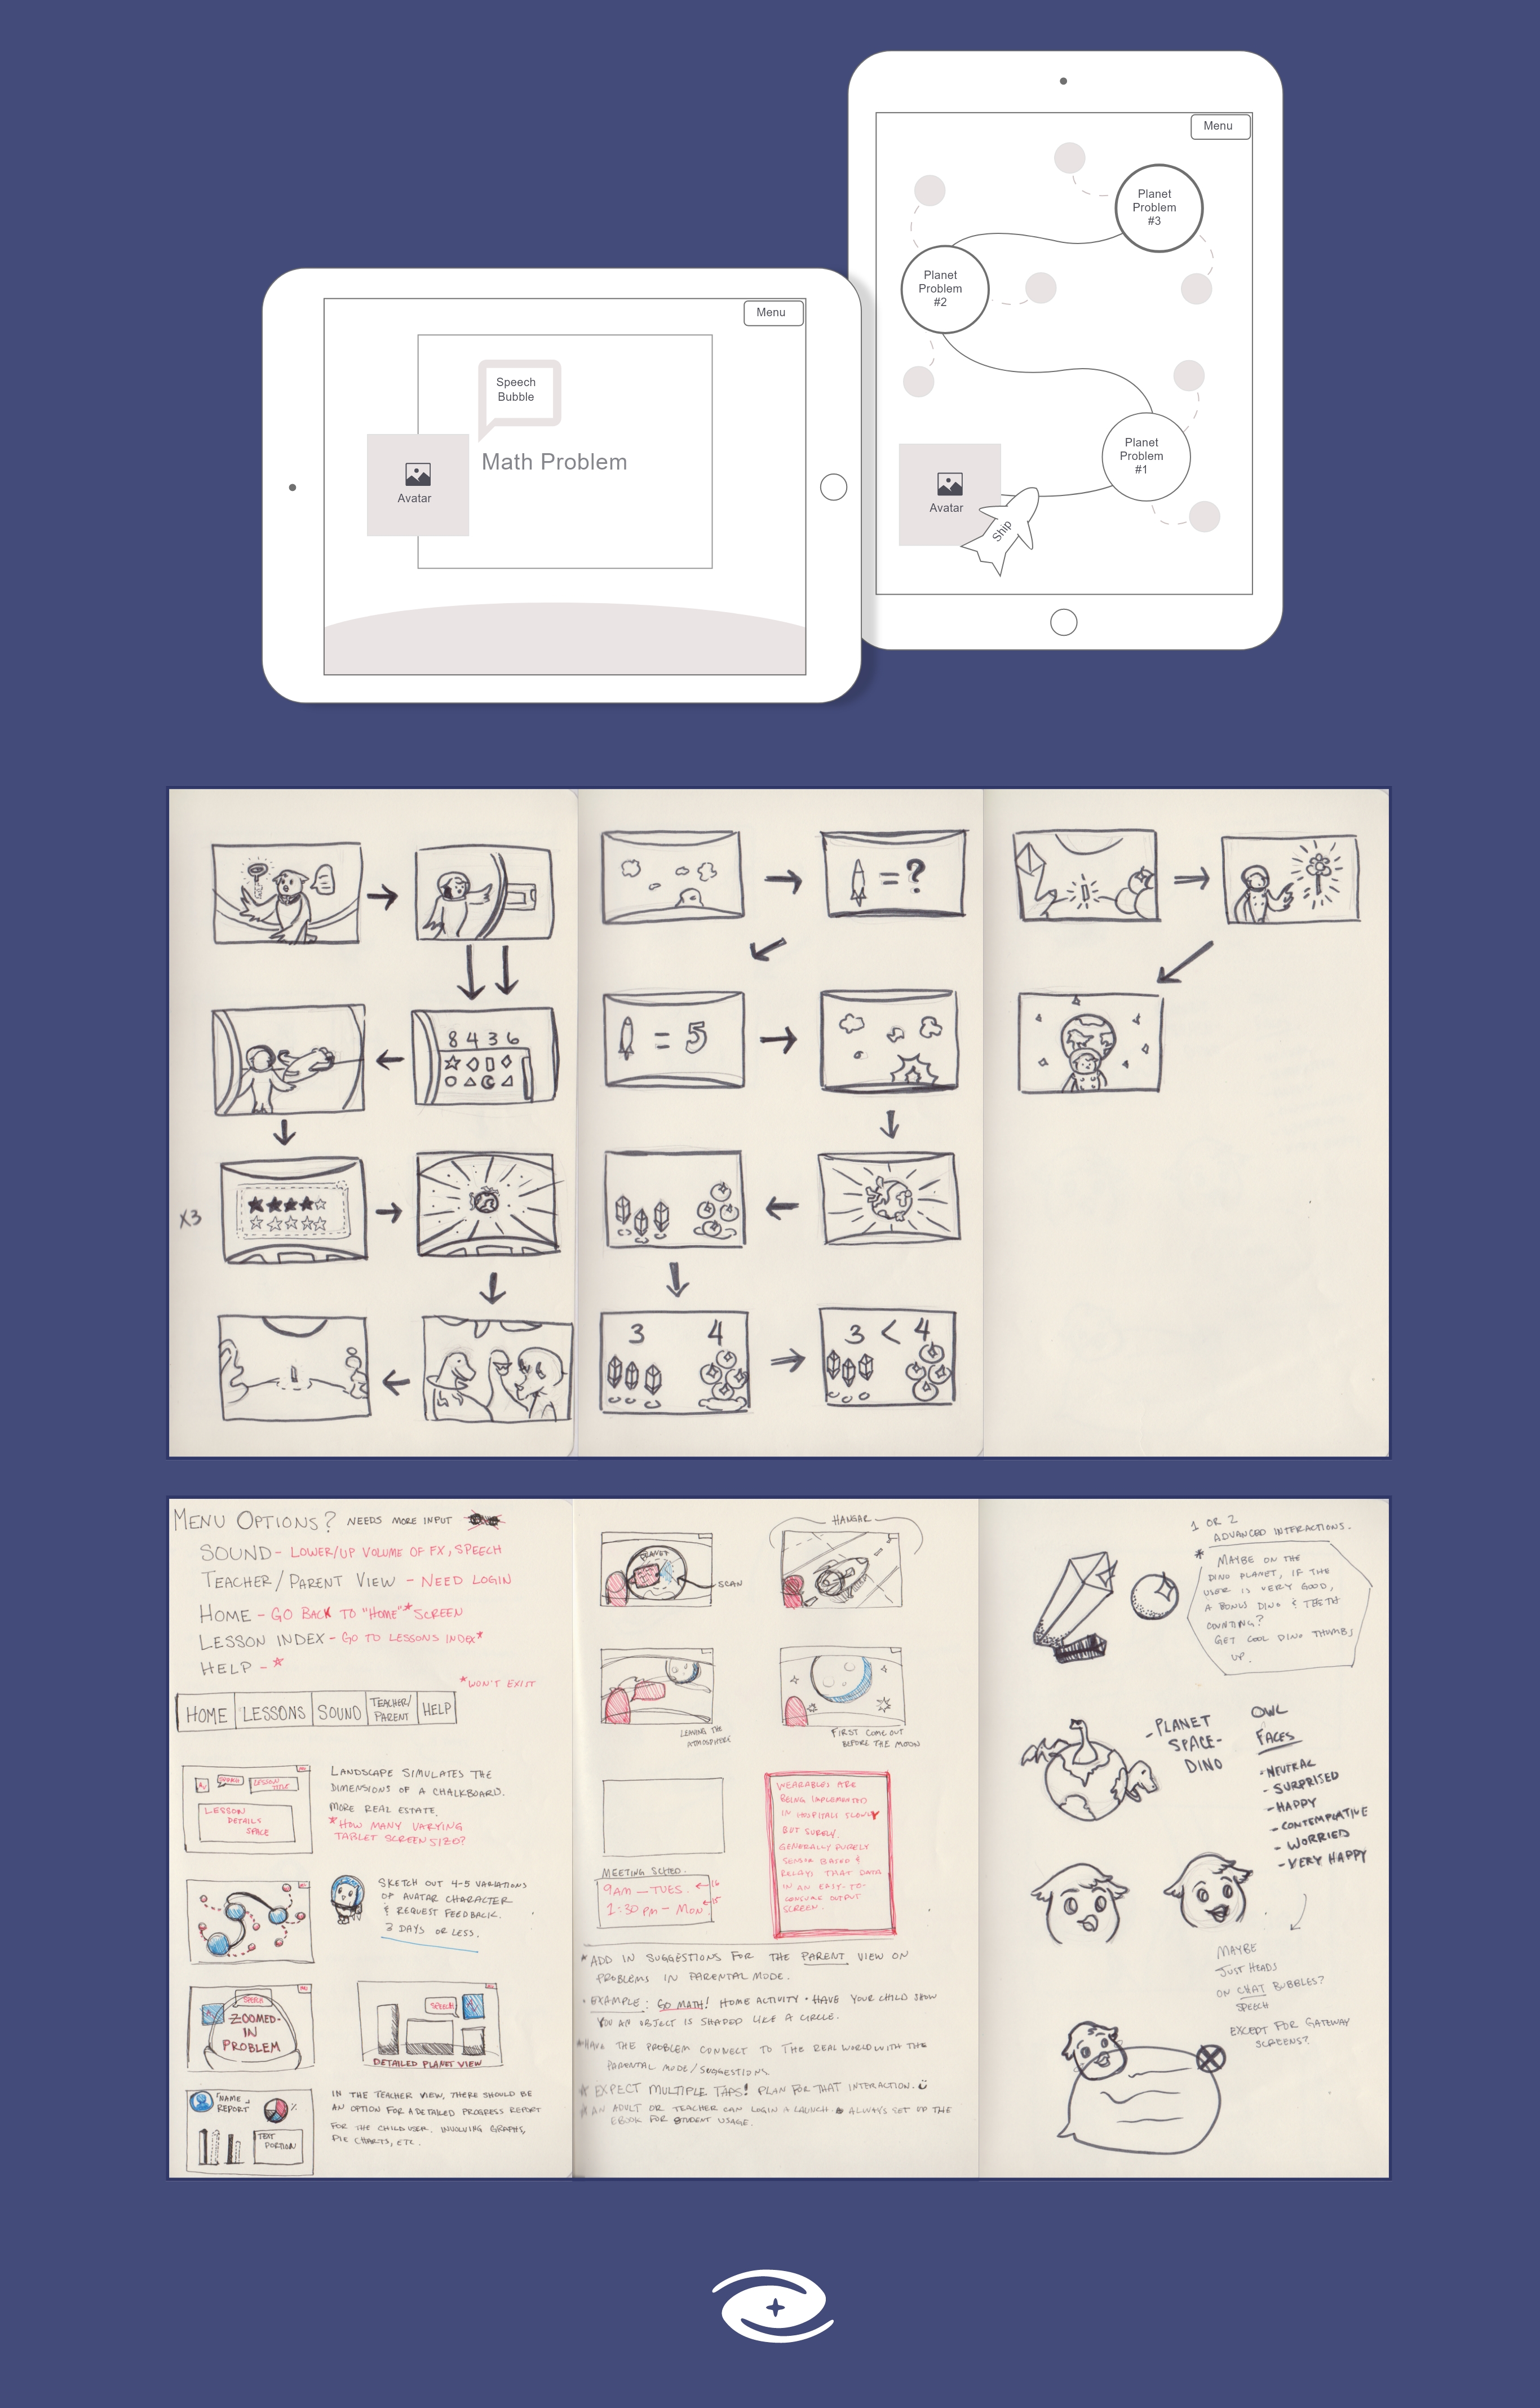 Menu
Planet
Problem
#3
Planet
Problem
#2
Planet
Problem
#1
Avatar
Ship
Menu
Speech
Bubble
Math Problem
Avatar
8 4 3 6
X3
= ?
= 5
3 4
3 < 4
MENU OPTIONS? NEEDS MORE INPUT
SOUND - LOWER/UP VOLUME OF FX, SPEECH
TEACHER/PARENT VIEW - NEED LOGIN
HOME - GO BACK TO "HOME"* SCREEN
LESSON INDEX - GO TO LESSONS INDEX*
HELP - *
*WON'T EXIST
HOME LESSONS SOUND TEACHER/ PARENT HELP
SPEECH LESSON TITLE
LESSON
DETAILS
SPACE
LANDSCAPE SIMULATES THE
DIMENSIONS OF A CHALKBOARD.
MORE REAL ESTATE.
*HOW MANY VARYING
TABLET SCREEN SIZD?
SKETCH OUT 4-5 VARIATIONS
OF AVATAR CHARACTER
& REQUEST FEEDBACK.
3 DAYS OR LESS.
SPEECH
ZOOMED-
IN
PROBLEM
SPEECH
DETAILED PLANET VIEW
"NAME"
REPORT
%
TEXT
PORTION
IN THE TEACHER VIEW, THERE SHOULD BE
AN OPTION FOR A DETAILED PROGRESS REPORT
FOR THE CHILD USER. INVOLVING GRAPHS,
PIE CHARTS, ETC.
PLANET
SCAN
HANGAR
LEAVING THE
ATMOSPHERE
FIRST COME OUT
BEFORE THE MOON
WEARABLES ARE
BEING IMPLEMENTED
IN HOSPITALS SLOWLY
BUT SURELY.
GENERALLY PURELY
SENSOR BASED &
RELAYS THAT DATA
IN AN EASY-TO-
CONSUME OUTPUT
SCREEN.
MEETING SCHED.
9AM — TUES. ← 16
1:30 PM - MON ← 15
*ADD IN SUGGESTIONS FOR THE PARENT VIEW ON
PROBLEMS IN PARENTAL MODE.
• EXAMPLE: GO MATH! HOME ACTIVITY • HAVE YOUR CHILD SHOW
YOU AN OBJECT IS SHAPED LIKE A CIRCLE.
*HAVE THE PROBLEM CONNECT TO THE REAL WORLD WITH THE
PARENTAL MODE/SUGGESTIONS
* EXPECT MULTIPLE TAPS! PLAN FOR THAT INTERACTION.
* AN ADULT OR TEACHER CAN LOGIN & LAUNCH & ALWAYS SET UP THE
EBOOK FOR STUDENT USAGE.
1 OR 2
ADVANCED INTERACTIONS.
* MAYBE ON THE
DINO PLANET, IF THE
USER IS VERY GOOD,
A BONUS DINO & TEETH
COUNTING?
GET COOL DINO THUMBS
UP.
-PLANET
SPACE-
DINO
OWL
FACES
-NEUTRAL
-SURPRISED
-HAPPY
-CONTEMPLATIVE
-WORRIED
-VERY HAPPY
MAYBE
JUST HEADS
ON CHAT BUBBLES?
SPEECH
EXCEPT FOR GATEWAY
SCREENS?